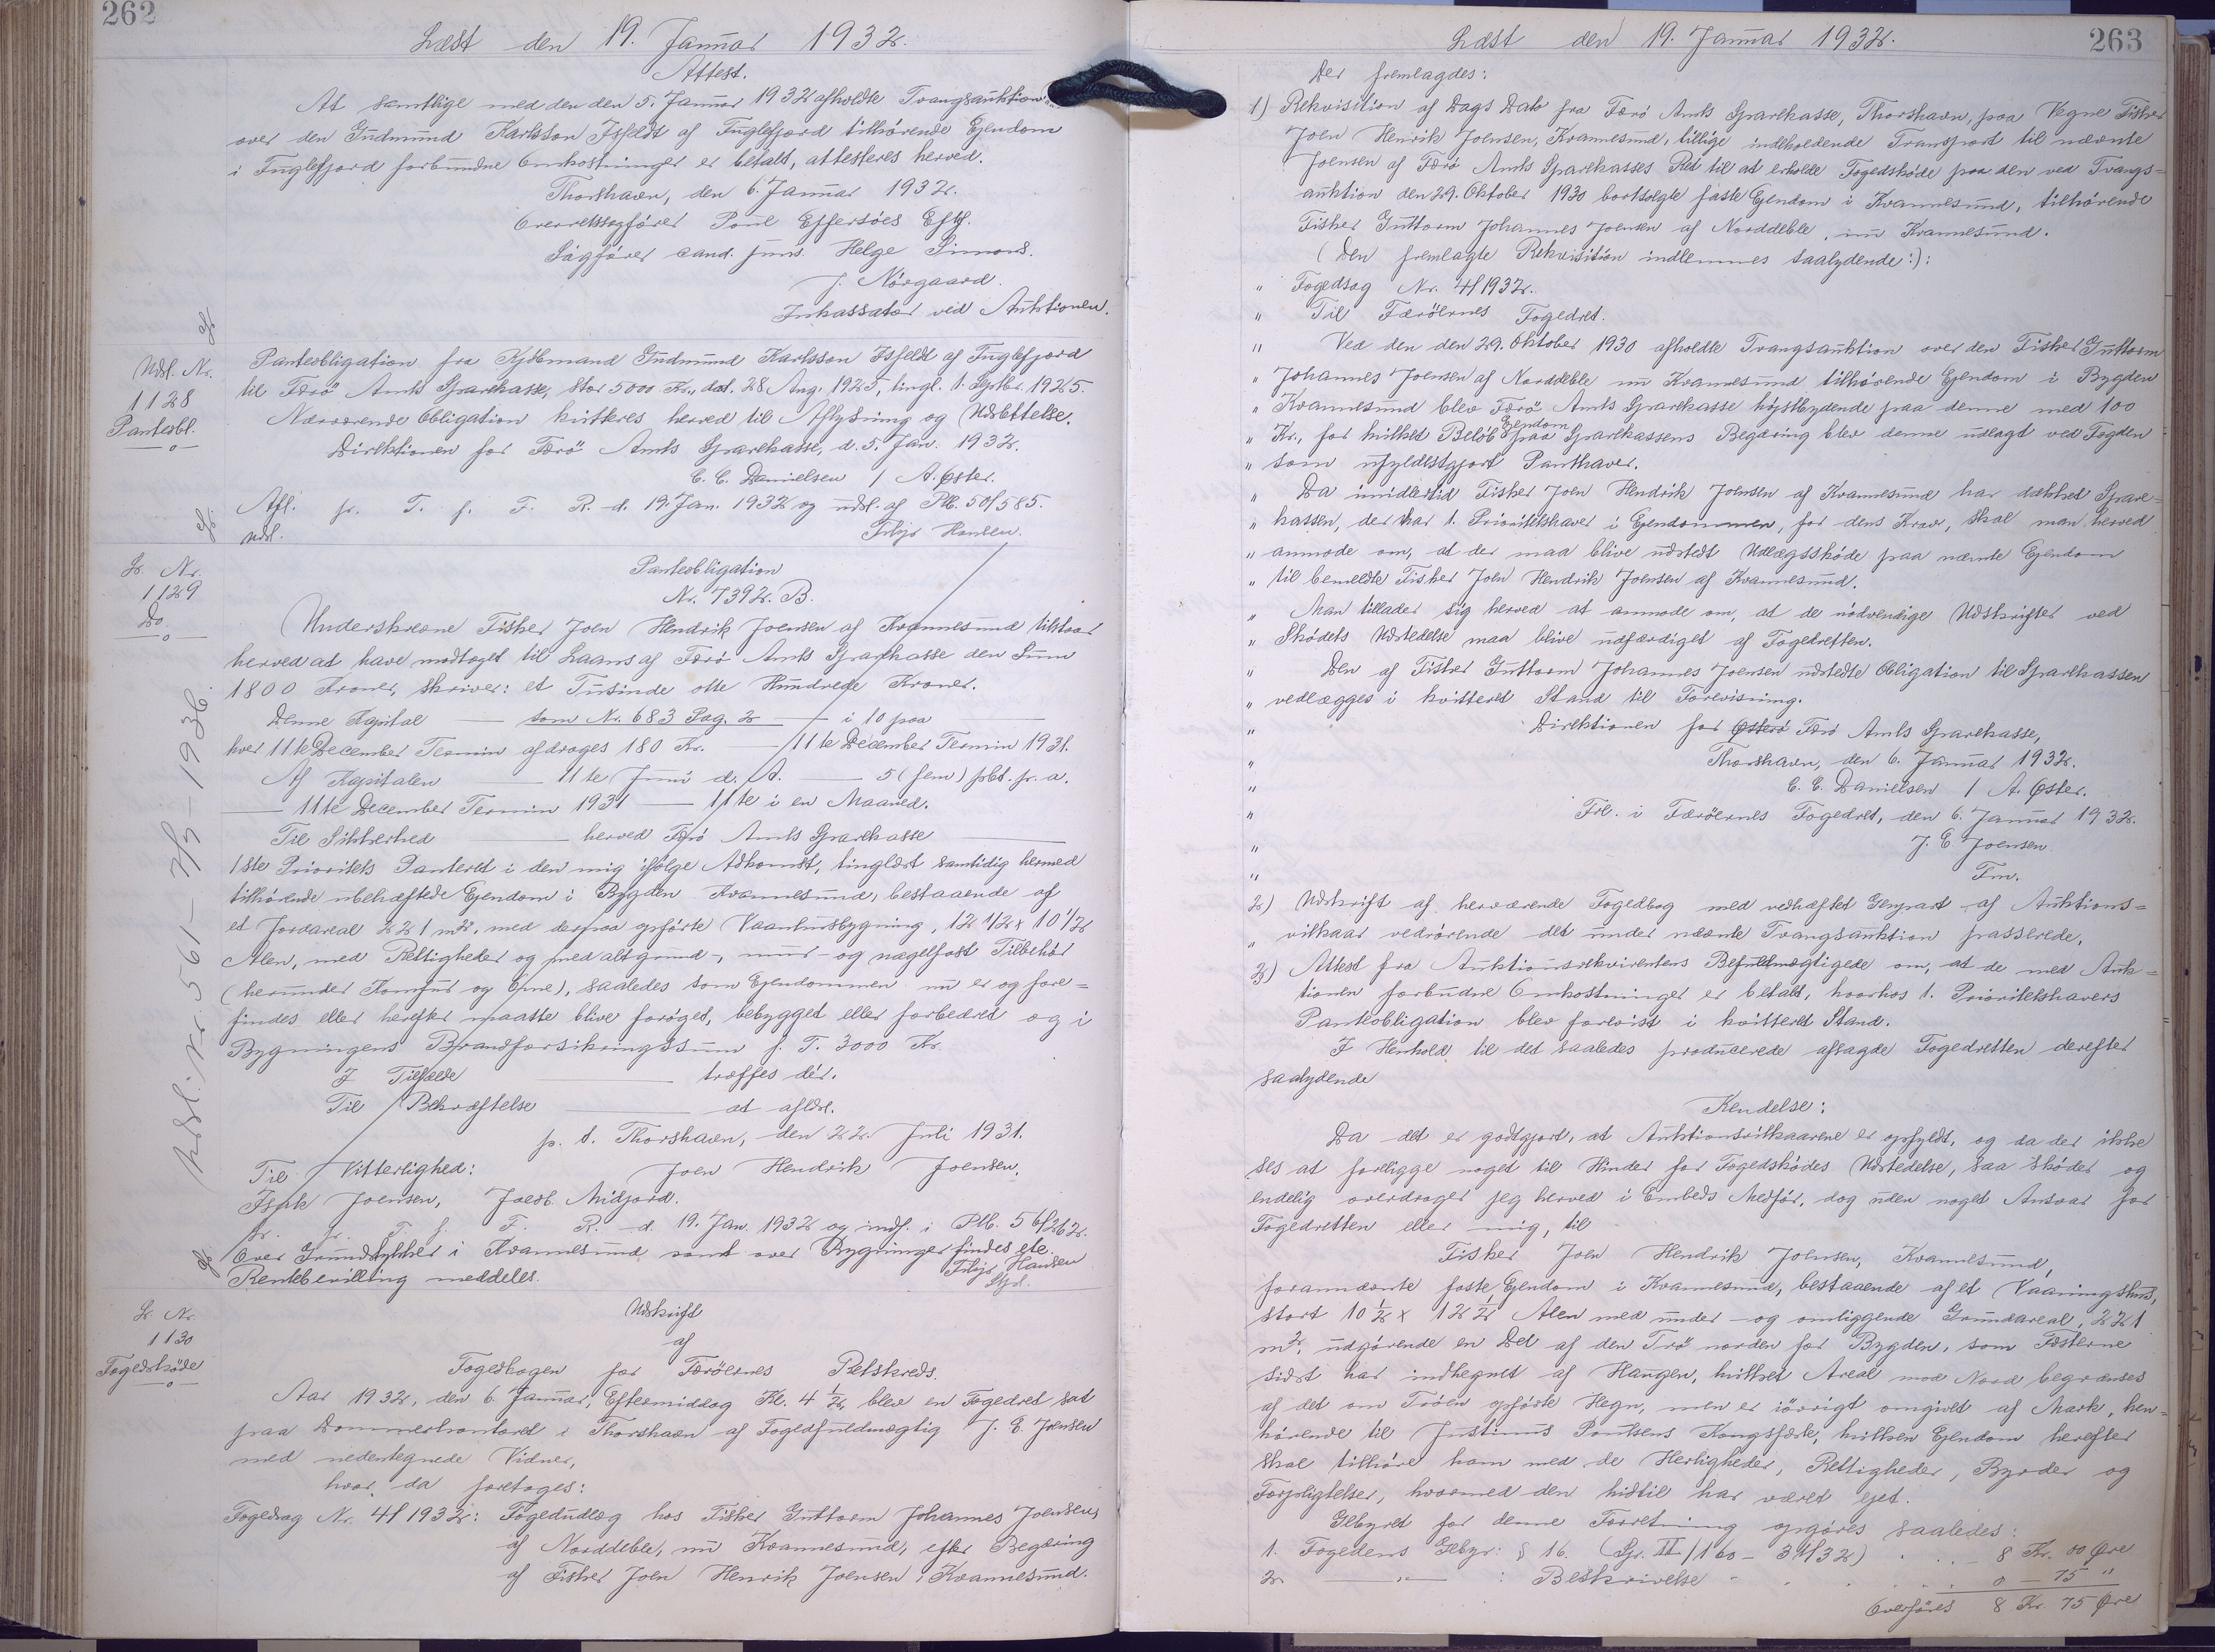 262
Læst den 19. Januar 1932.
Attest.
At samtlige med den den 5. Januar 1932 afholdte Tvangsauktion
over den Gudmund Karlsson Isfeldt af Fuglefjord tilhørende Ejendom
i Fuglefjord forbundne Omkostninger er betalt, attesteres herved.
Thorshavn, den 6. Januar 1932.
Overretssagfører Poul Effersöes Eftf.
Sagfører cand. juris. Helge Simons.
J. Nörgaard.
Inkassator ved Auktionen.
Udsl. Nr.
1128
Panteobl.
Panteobligation fra Kjöbmand Gudmund Karlsson Isfeldt af Fuglefjord
til Færö Amts Sparekasse, stor 5000 Kr., dat. 28 Aug. 1925, tingl. 1. Septbr. 1925.
Nærværende Obligation kvitteres herved til Aflysning og Udslettelse.
Direktionen for Færö Amts Sparekasse, d. 5. Jan. 1932.
C. C. Danielsen / A. Øster.
Afl. pr. T. f. F. R. d. 19. Jan. 1932 og udsl. af Ptb. 50/585.
Udsl. Filip Hansen.
Lb. Nr.
1129
Do.
Panteobligation
Nr. 7392. B.
Underskrevne Fisker Joen Hendrik Joensen af Kvannesund tilstaar
herved at have modtaget til Laans af Færö Amts Sparekasse den Sum
1800 Kroner, skriver: et Tusinde otte Hundrede Kroner.
Denne Kapital — som Nr. 683 Pag. 2 — i 10 paa —
hver 11te December Termin afdrages 180 Kr. — 11te December Termin 1931.
Af Kapitalen — 11te Juni d. A. — 5 (fem) pCt. p. a.
— 11te December Termin 1931 — 11te i en Maaned.
Til Sikkerhed — herved Færö Amts Sparekasse —
1ste Prioritets Panteret i den mig ifölge Adkomst, tinglæst samtidig hermed
tilhörende ubehæftede Ejendom i Bygden Kvannesund, bestaaende af
et Jordareal 221 m², med derpaa opförte Vaanhusbygning, 12 1/2 x 10 1/2
Alen, med Rettigheder og med alt grund-, mur- og nagelfast Tilbehör
(herunder Komfur og Ovne), saaledes som Ejendommen nu er og fore=
findes eller herefter maatte blive foröget, bebygget eller forbedret og i
Bygningens Brandforsikringssum p. T. 3000 Kr.
I Tilfælde — træffes dér.
Til Bekræftelse — at afldl.
p. t. Thorshavn, den 22. Juli 1931.
Til Vitterlighed: Joen Hendrik Joensen.
Joensen, Jacob. Midjord.
Lr. pr. T. f. F. R. d. 19. Jan. 1932 og indf. i Ptb. 56/262.
Over Grundstykker i Kvannesund samt over Bygninger findes ete.
Rentebevilling meddeles. Filip Hansen
Stfd.
Udsl. Nr. 561 - 7/5 - 1936.
Lb. Nr.
1130
Fogedsköde
Udskrift
af
Fogedbogen for Færöernes Retskreds.
Aar 1932, den 6. Januar, Eftermiddag Kl. 4 1/2, blev en Fogedret sat
paa Dommerkontoret i Thorshavn af Fogedfuldmægtig J. E. Joensen
med nedentegnede Vidner,
hvor da foretoges:
Fogedsag Nr. 4/1932: Fogedudlæg hos Fisker Guttorm Johannes Joensen,
af Norddeble, nu Kvannesund, efter Begæring
af Fisker Joen Henrik Joensen, Kvannesund.
263
Læst den 19. Januar 1932.
Der fremlagdes:
1) Rekvisition af Dags Dato fra Færö Amts Sparekasse, Thorshavn, paa Vegne Fisker
Joen Henrik Joensen, Kvannesund, tillige indeholdende Transport til nævnte
Joensen af Færö Amts Sparekasses Ret til at erholde Fogedsköde paa den ved Tvangs=
auktion den 29. Oktober 1930 bortsolgte faste Ejendom i Kvannesund, tilhörende
Fisker Guttorm Johannes Joensen af Norddeble, nu Kvannesund.
(Den fremlagte Rekvisition indlemmes saalydende:):
" Fogedsag Nr. 4/1932.
" Til Færöernes Fogedret.
" Ved den den 29. Oktober 1930 afholdte Tvangsauktion over den Fisker Guttorm
" Johannes Joensen af Norddeble nu Kvannesund tilhörende Ejendom i Bygden
" Kvannesund blev Færö Amts Sparekasse höjstbydende paa denne med 100
" Kr., for hvilket Belöb Ejendom paa Sparekassens Begæring blev denne udlagt ved Fogden
" som ufyldestgjort Panthaver.
" Da imidlertid Fisker Joen Hendrik Joensen af Kvannesund har dækket Spare=
" kassen, der har 1. Prioritetshaver i Ejendommen, for dens Krav, skal man herved
" anmode om, at der maa blive udstedt Udlægsskøde paa nævnte Ejendom
" til bemeldte Fisker Joen Hendrik Joensen af Kvannesund.
" Man tillader sig herved at anmode om, at de nödvendige Udskrifter ved
" Skødets Udstedelse maa blive udfærdiget af Fogedretten.
" Den af Fisker Guttorm Johannes Joensen udstedte Obligation til Sparekassen
" vedlægges i kvitteret Stand til Forevisning.
" Direktionen for Østerö Færö Amts Sparekasse,
" Thorshavn, den 6. Januar 1932.
" C. C. Danielsen / A. Øster.
" Frl. i Færöernes Fogedret, den 6. Januar 1932.
" J. E. Joensen
" Fm.
2) Udskrift af herværende Fogedbog med vedhæftet Genpart af Auktions=
" vilkaar vedrörende det under nævnte Tvangsauktion passerede.
3) Attest fra Auktionsrekvirentens Befuldmægtigede om, at de med Auk=
tionen forbundne Omkostninger er betalt, hvorhos 1. Prioritetshavers
Panteobligation blev forevist i kvitteret Stand.
I Henhold til det saaledes producerede afsagde Fogedretten derefter
saalydende
Kendelse:
Da det er godtgjort, at Auktionsvilkaarene er opfyldt, og da der ikke
ses at foreligge noget til Hinder for Fogedskødes Udstedelse, saa skøder og
endelig overdrager jeg herved i Embeds Medför, dog uden noget Ansvar for
Fogedretten eller mig, til
Fisker Joen Hendrik Joensen, Kvannesund,
forannævnte faste Ejendom i Kvannesund, bestaaende af et Vaaningshus,
stort 10 1/2 x 12 1/2 Alen med under- og omliggende Grundareal, 221
m², udgörende en Del af den Trö norden for Bygden, som Fæsterne
sidst har indhegnet af Haugen, hvilket Areal mod Nord begrænses
af det om Tröen opförte Hegn, men er iövrigt omgivet af Mark, hen=
hörende til Justinus Poulsens Kongsfæste, hvilken Ejendom herefter
skal tilhöre ham med de Herligheder, Rettigheder, Byrder og
Forpligtelser, hvormed den hidtil har været ejet.
Gebyret for denne Forretning opgöres saaledes:
1. Fogedens Gebyr: § 16. (Spr. II/160 - 3/132) . . . 8 Kr. 00 Øre
2. — " — : Beskrivelse . . . 0 — 75 "
Overföres 8 Kr. 75 Øre